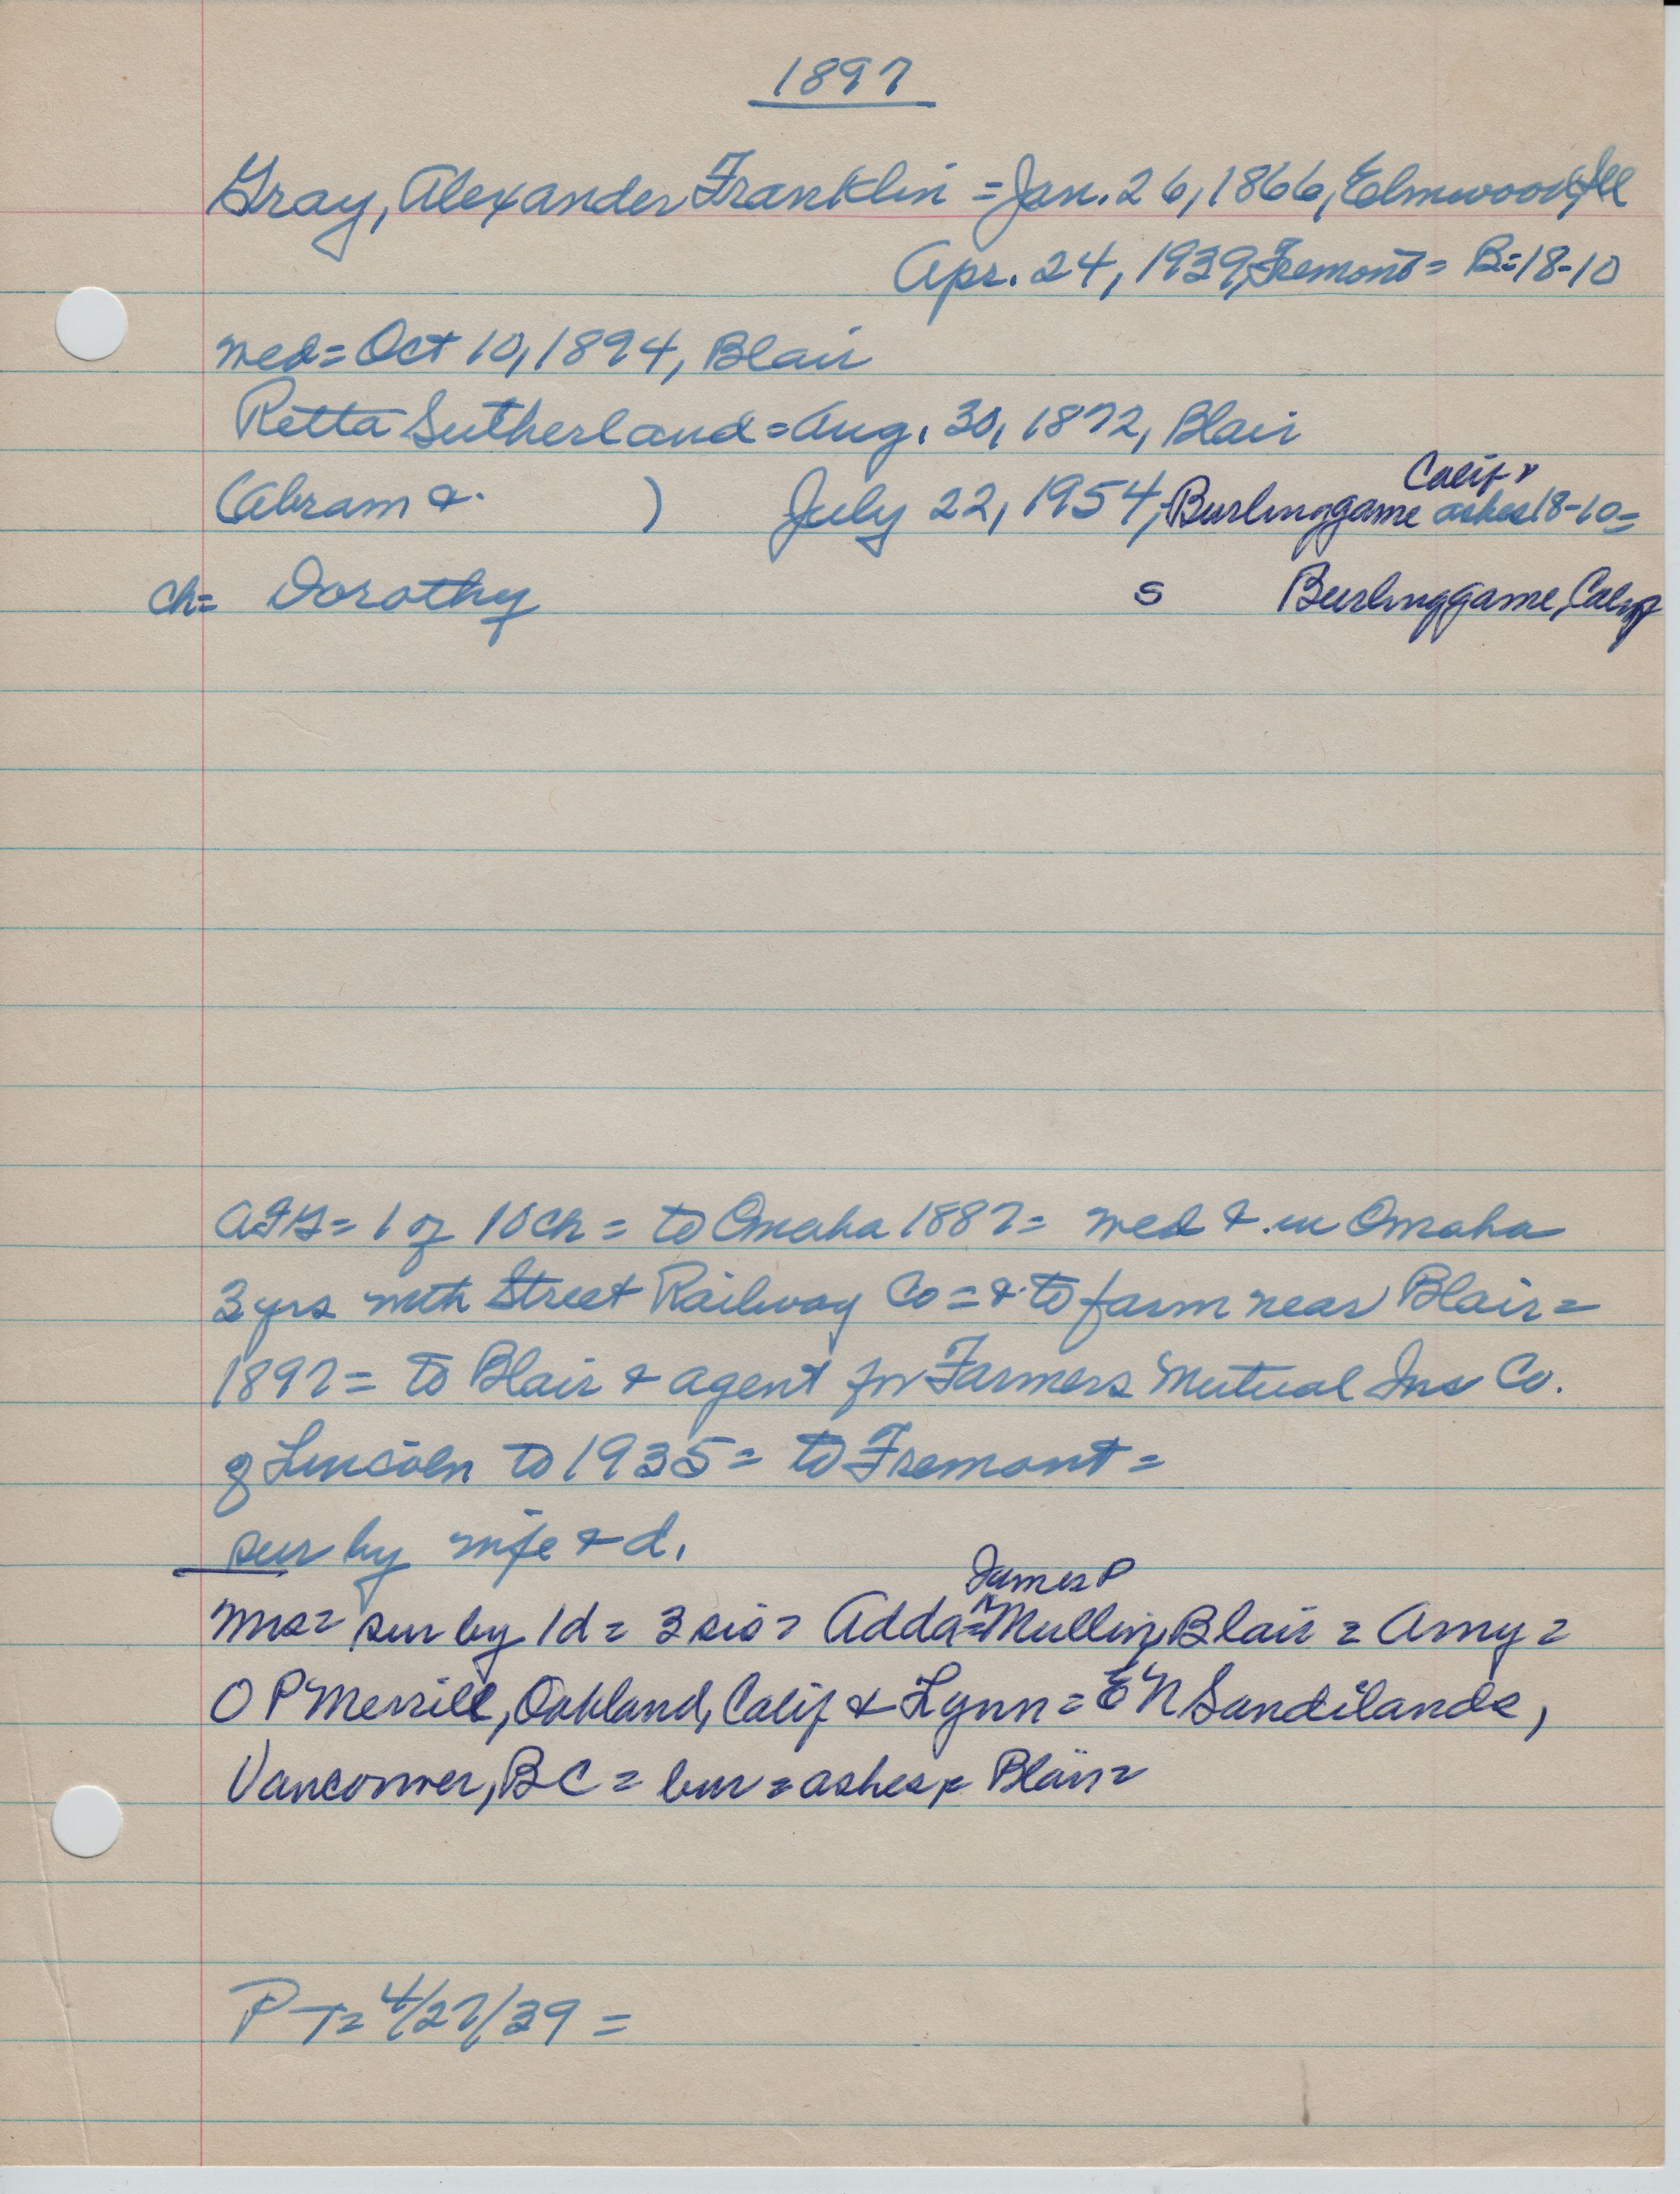 1897
Gray, Alexander Franklin = Jan. 26, 1866, Elmwood, Ill
Apr. 24, 1939, Fremont = B=18-10
wed= Oct 10, 1894, Blair
Retta Sutherland = Aug. 30, 1872, Blair
Calif &
(Abram & ) July 22, 1954, Burlinggame ashes 18-10=
ch= Dorothy s Burlinggame, Calif
AFG= 1 of 10 ch = to Omaha 1887= wed & in Omaha
3 yrs with Street Railway Co = & to farm near Blair =
1897= to Blair & agent for Farmers Mutual Ins Co.
of Lincoln to 1935= to Fremont =
sur by wife & d.
James P
Mrs= sur by 1d = 3 sis = Adda= Mullin, Blair = Amy =
O P Merrill, Oakland, Calif & Lynn = E N Sandilands,
Vancouver, BC = bur = ashes, Blair=
PT= 4/27/39 =